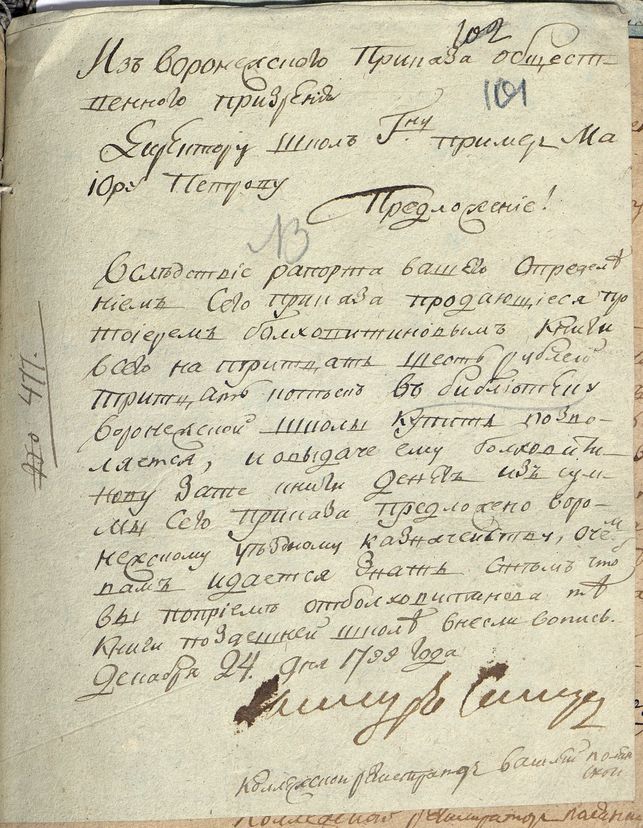 102
Изъ Воронежскаго Приказа общест-
101
веннаго призрения
Директору школъ Г.ну пример Ма
іору Петрову
Предложеніе!
№ 477.
Вследствіе рапорта вашего Определе
ніемъ Сего приказа продающіеся про
тоіеремъ болховитиновымъ книги
всего на тритцать шесть рублей
тритцать копѣекъ въ библіотеку
воронежской школы купить позво-
ляется, и овыдаче ему болховити-
нову зате книги денегъ изъ сум-
мы Сего приказа предложено воро-
нежскому уѣздному казначейству, очем
вамъ идается знать стемъ что
вы попріемѣ отболховитинова тѣ
книги поздешней школѣ внесли вопись.
Декабря 24. дня 1799 Года
Коллежской регистраторъ Василей